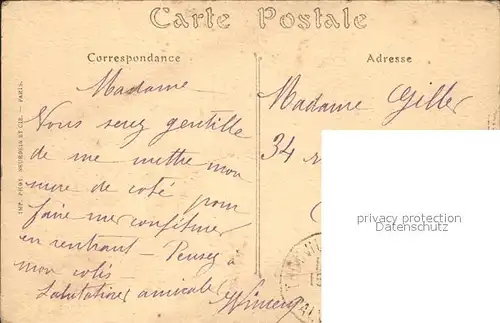 Carte Postale
Correspondance
Adresse
Madame
Vous serez gentille
de me mettre mon
mure de coté pour
faire mes confitures
en rentrant - Pensez à
mon colis
Salutations amicales
Madame Giller
34
privacy protection
oldthing.com
IMP. PHOT. NEURDEIN ET CIE. — PARIS.